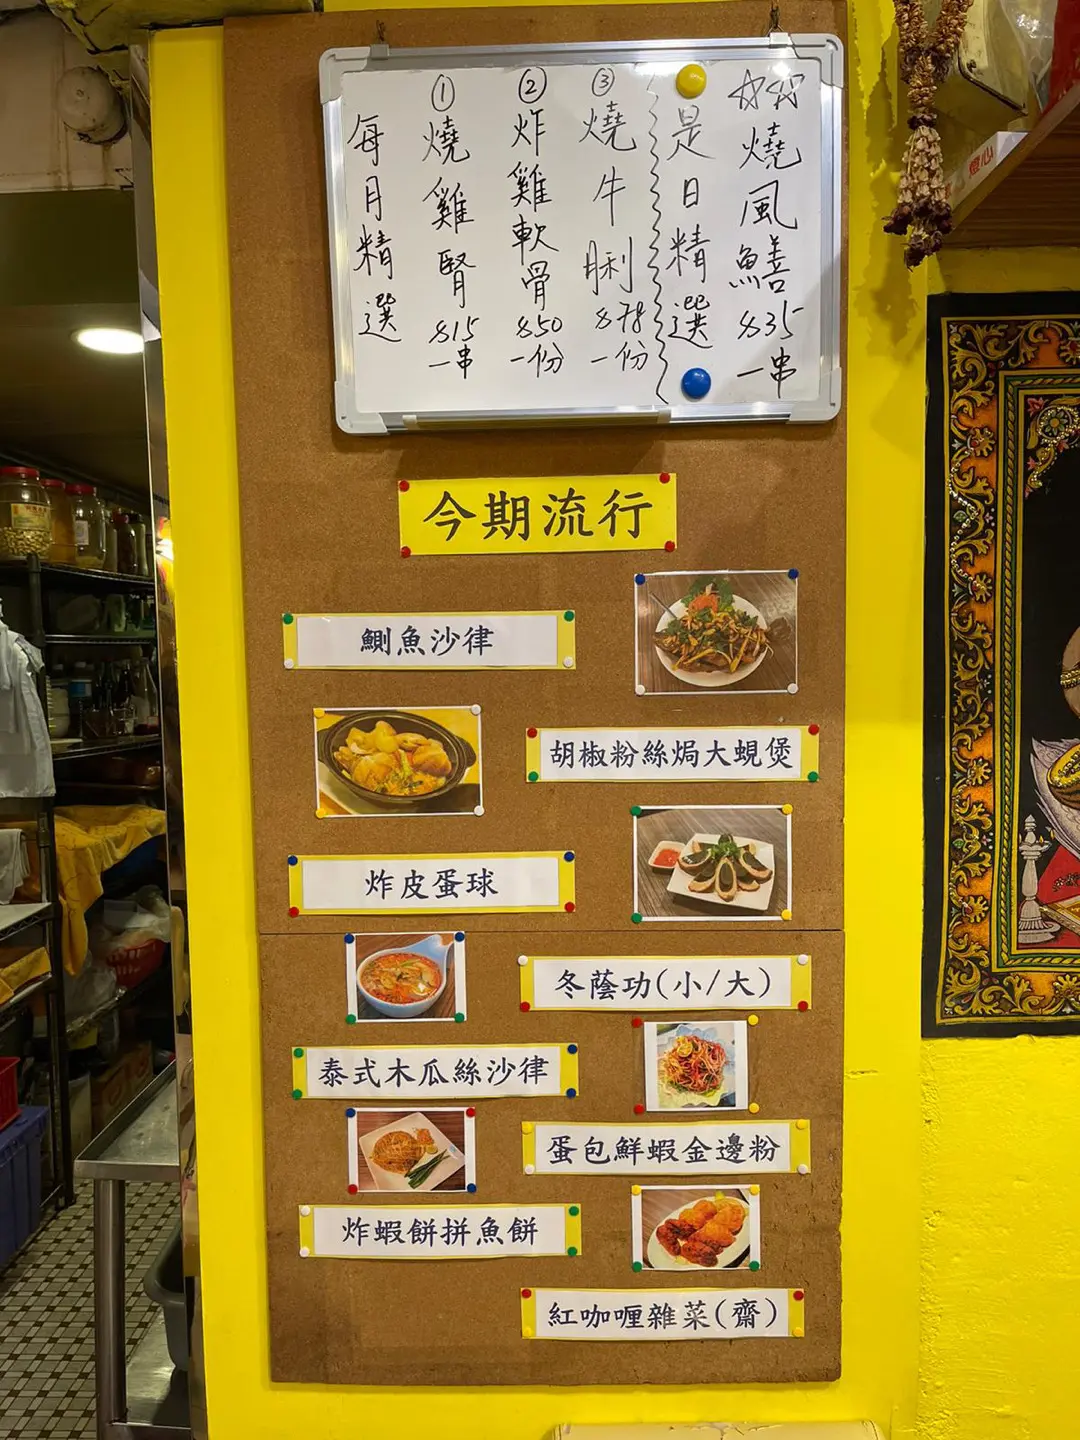 每月精選
① 燒雞腎 $15 一串
② 炸雞軟骨 $50 一份
③ 燒牛脷 $78 一份
是日精選
☆☆ 燒風鱔 $35 一串
今期流行
鰂魚沙律
胡椒粉絲焗大蜆煲
炸皮蛋球
冬蔭功(小/大)
泰式木瓜絲沙律
蛋包鮮蝦金邊粉
炸蝦餅拼魚餅
紅咖喱雜菜(齋)
燈心